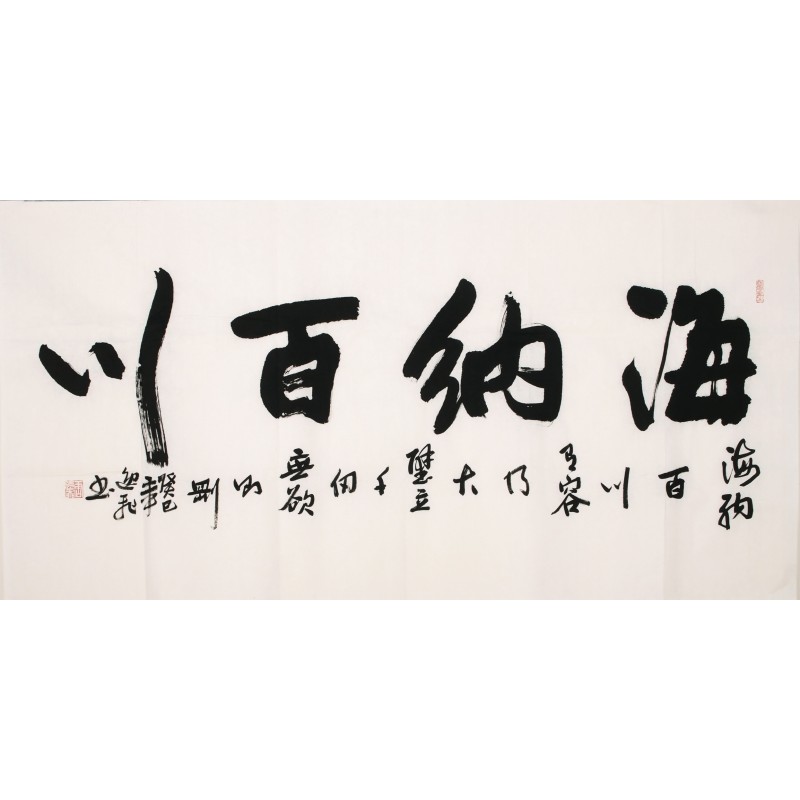 海纳百川
海纳百川有容乃大壁立千仞無欲则刚
癸巳年
书